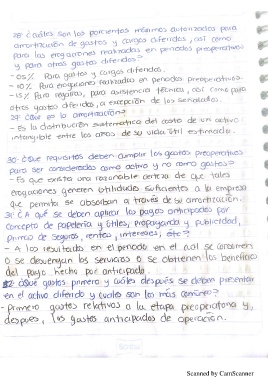 28 ¿Cuáles son los porcientos máximos autorizados para
amortización de gastos y cargos diferidos, así como
para las erogaciones realizadas en periodos preoperativos
y para otros gastos diferidos?
- 05% Para gastos y cargos diferidos.
- 10% Para erogaciones realizadas en periodos preoperativos.
- 15% Para regalías, para asistencia técnica, así como para
otros gastos diferidos, a excepción de los señalados.
29 ¿Qué es la amortización?
- Es la distribución sistemática del costo de un activo
intangible entre los años de su vida útil estimada.
30 ¿Qué requisitos deben cumplir los gastos preoperativos
para ser considerados como activo y no como gastos?
- Es que exista una razonable certeza de que tales
erogaciones generen utilidades suficientes a la empresa
que permita se absorban a través de su amortización.
31 ¿A qué se deben aplicar los pagos anticipados por
concepto de papelería y útiles, propaganda y publicidad,
primas de seguros, rentas, intereses, etc?
- A los resultados en el periodo en el cual se consumen
o se devengan los servicios o se obtienen los beneficios
del pago hecho por anticipado.
32 ¿Qué gastos primero y cuáles después se deben presentar
en el activo diferido y cuáles son los más comunes?
- Primero gastos relativos a la etapa preoperatoria y,
después, los gastos anticipados de operación.
Scanned by CamScanner